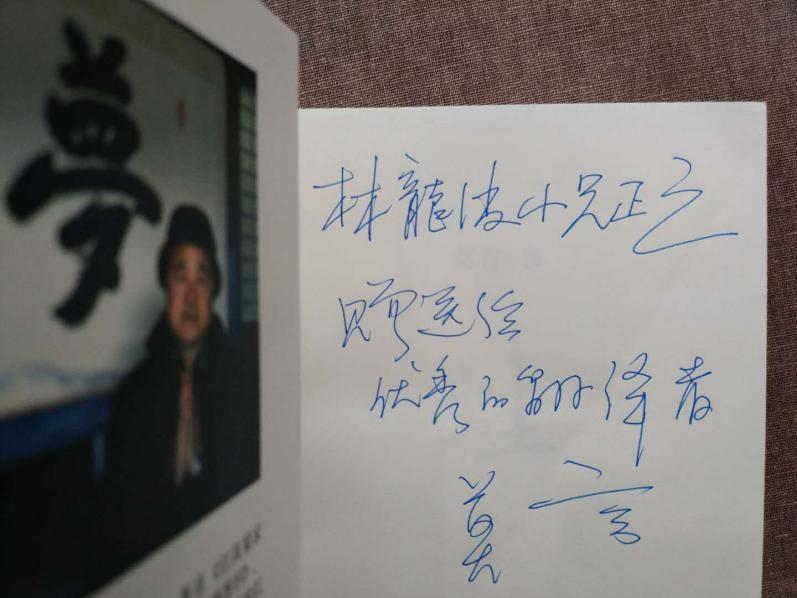 夢
林龍波小兄正之
赠送给
优秀的翻译者
莫言